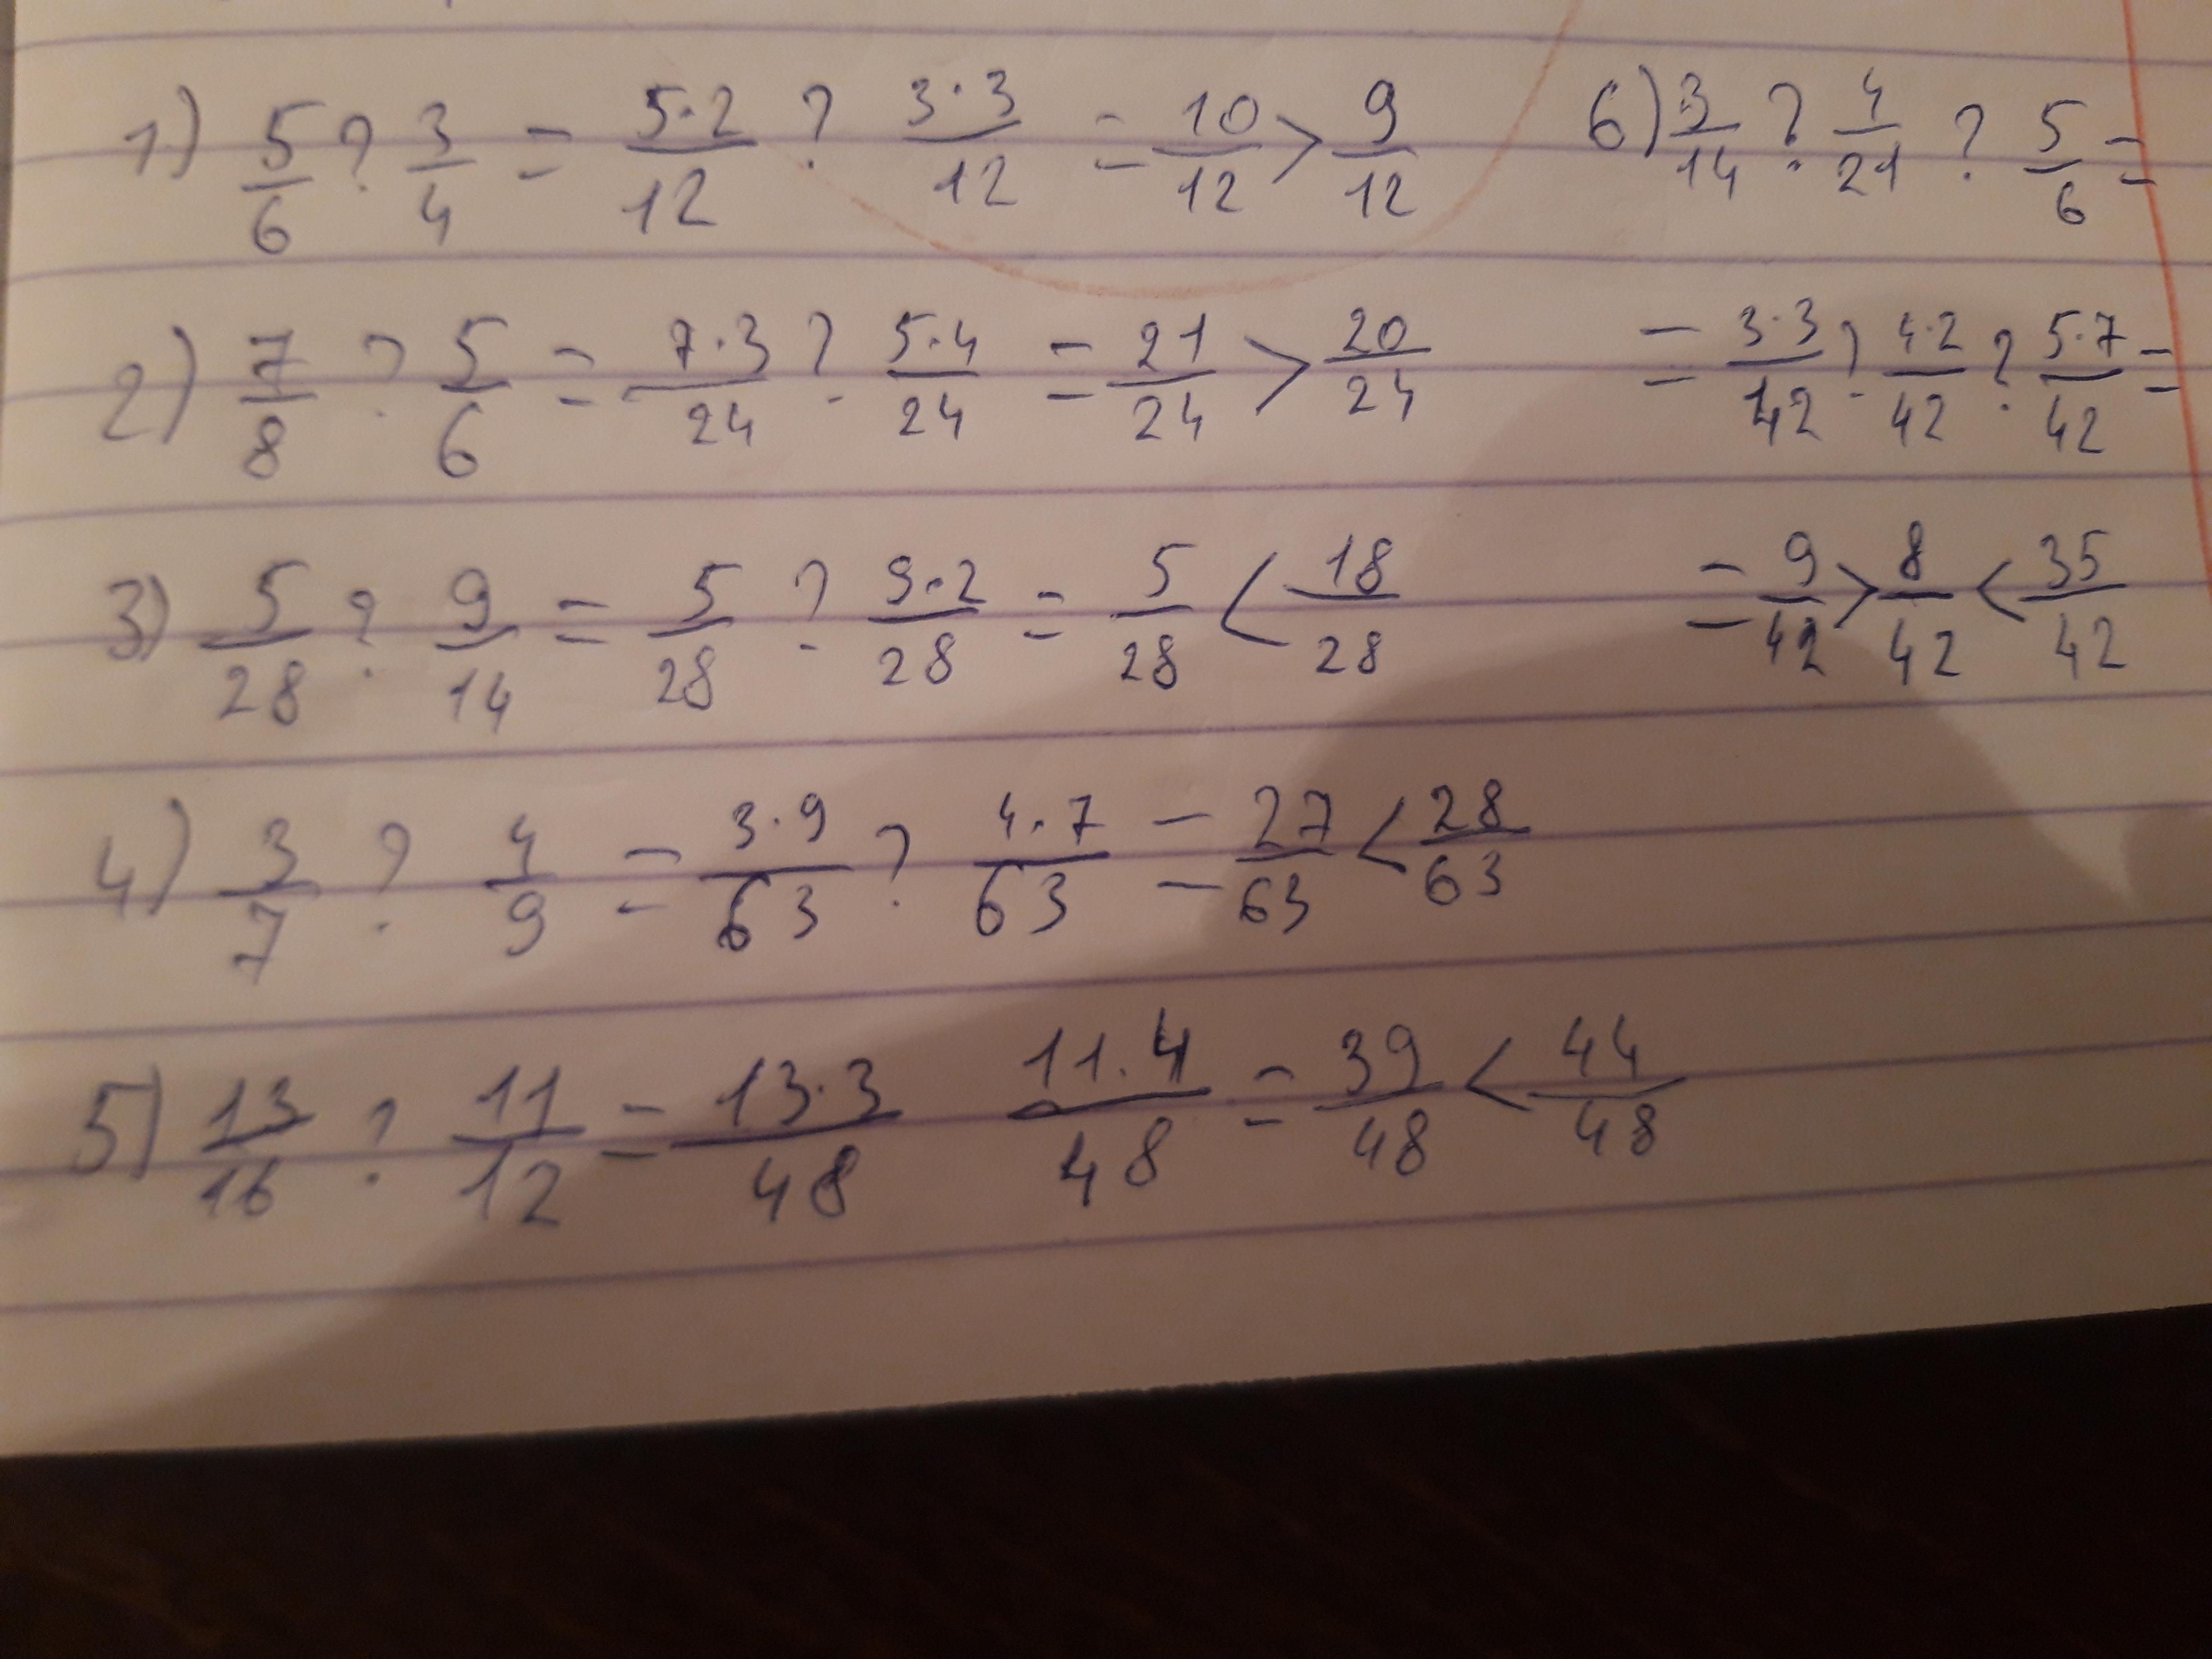 1) 5/6 ? 3/4 = 5·2/12 ? 3·3/12 = 10/12 > 9/12
2) 7/8 ? 5/6 = 7·3/24 ? 5·4/24 = 21/24 > 20/24
3) 5/28 ? 9/14 = 5/28 ? 9·2/28 = 5/28 < 18/28
4) 3/7 ? 4/9 = 3·9/63 ? 4·7/63 = 27/63 < 28/63
5) 13/16 ? 11/12 = 13·3/48 11·4/48 = 39/48 < 44/48
6) 3/14 ? 4/21 ? 5/6 =
= 3·3/42 ? 4·2/42 ? 5·7/42 =
= 9/42 > 8/42 < 35/42